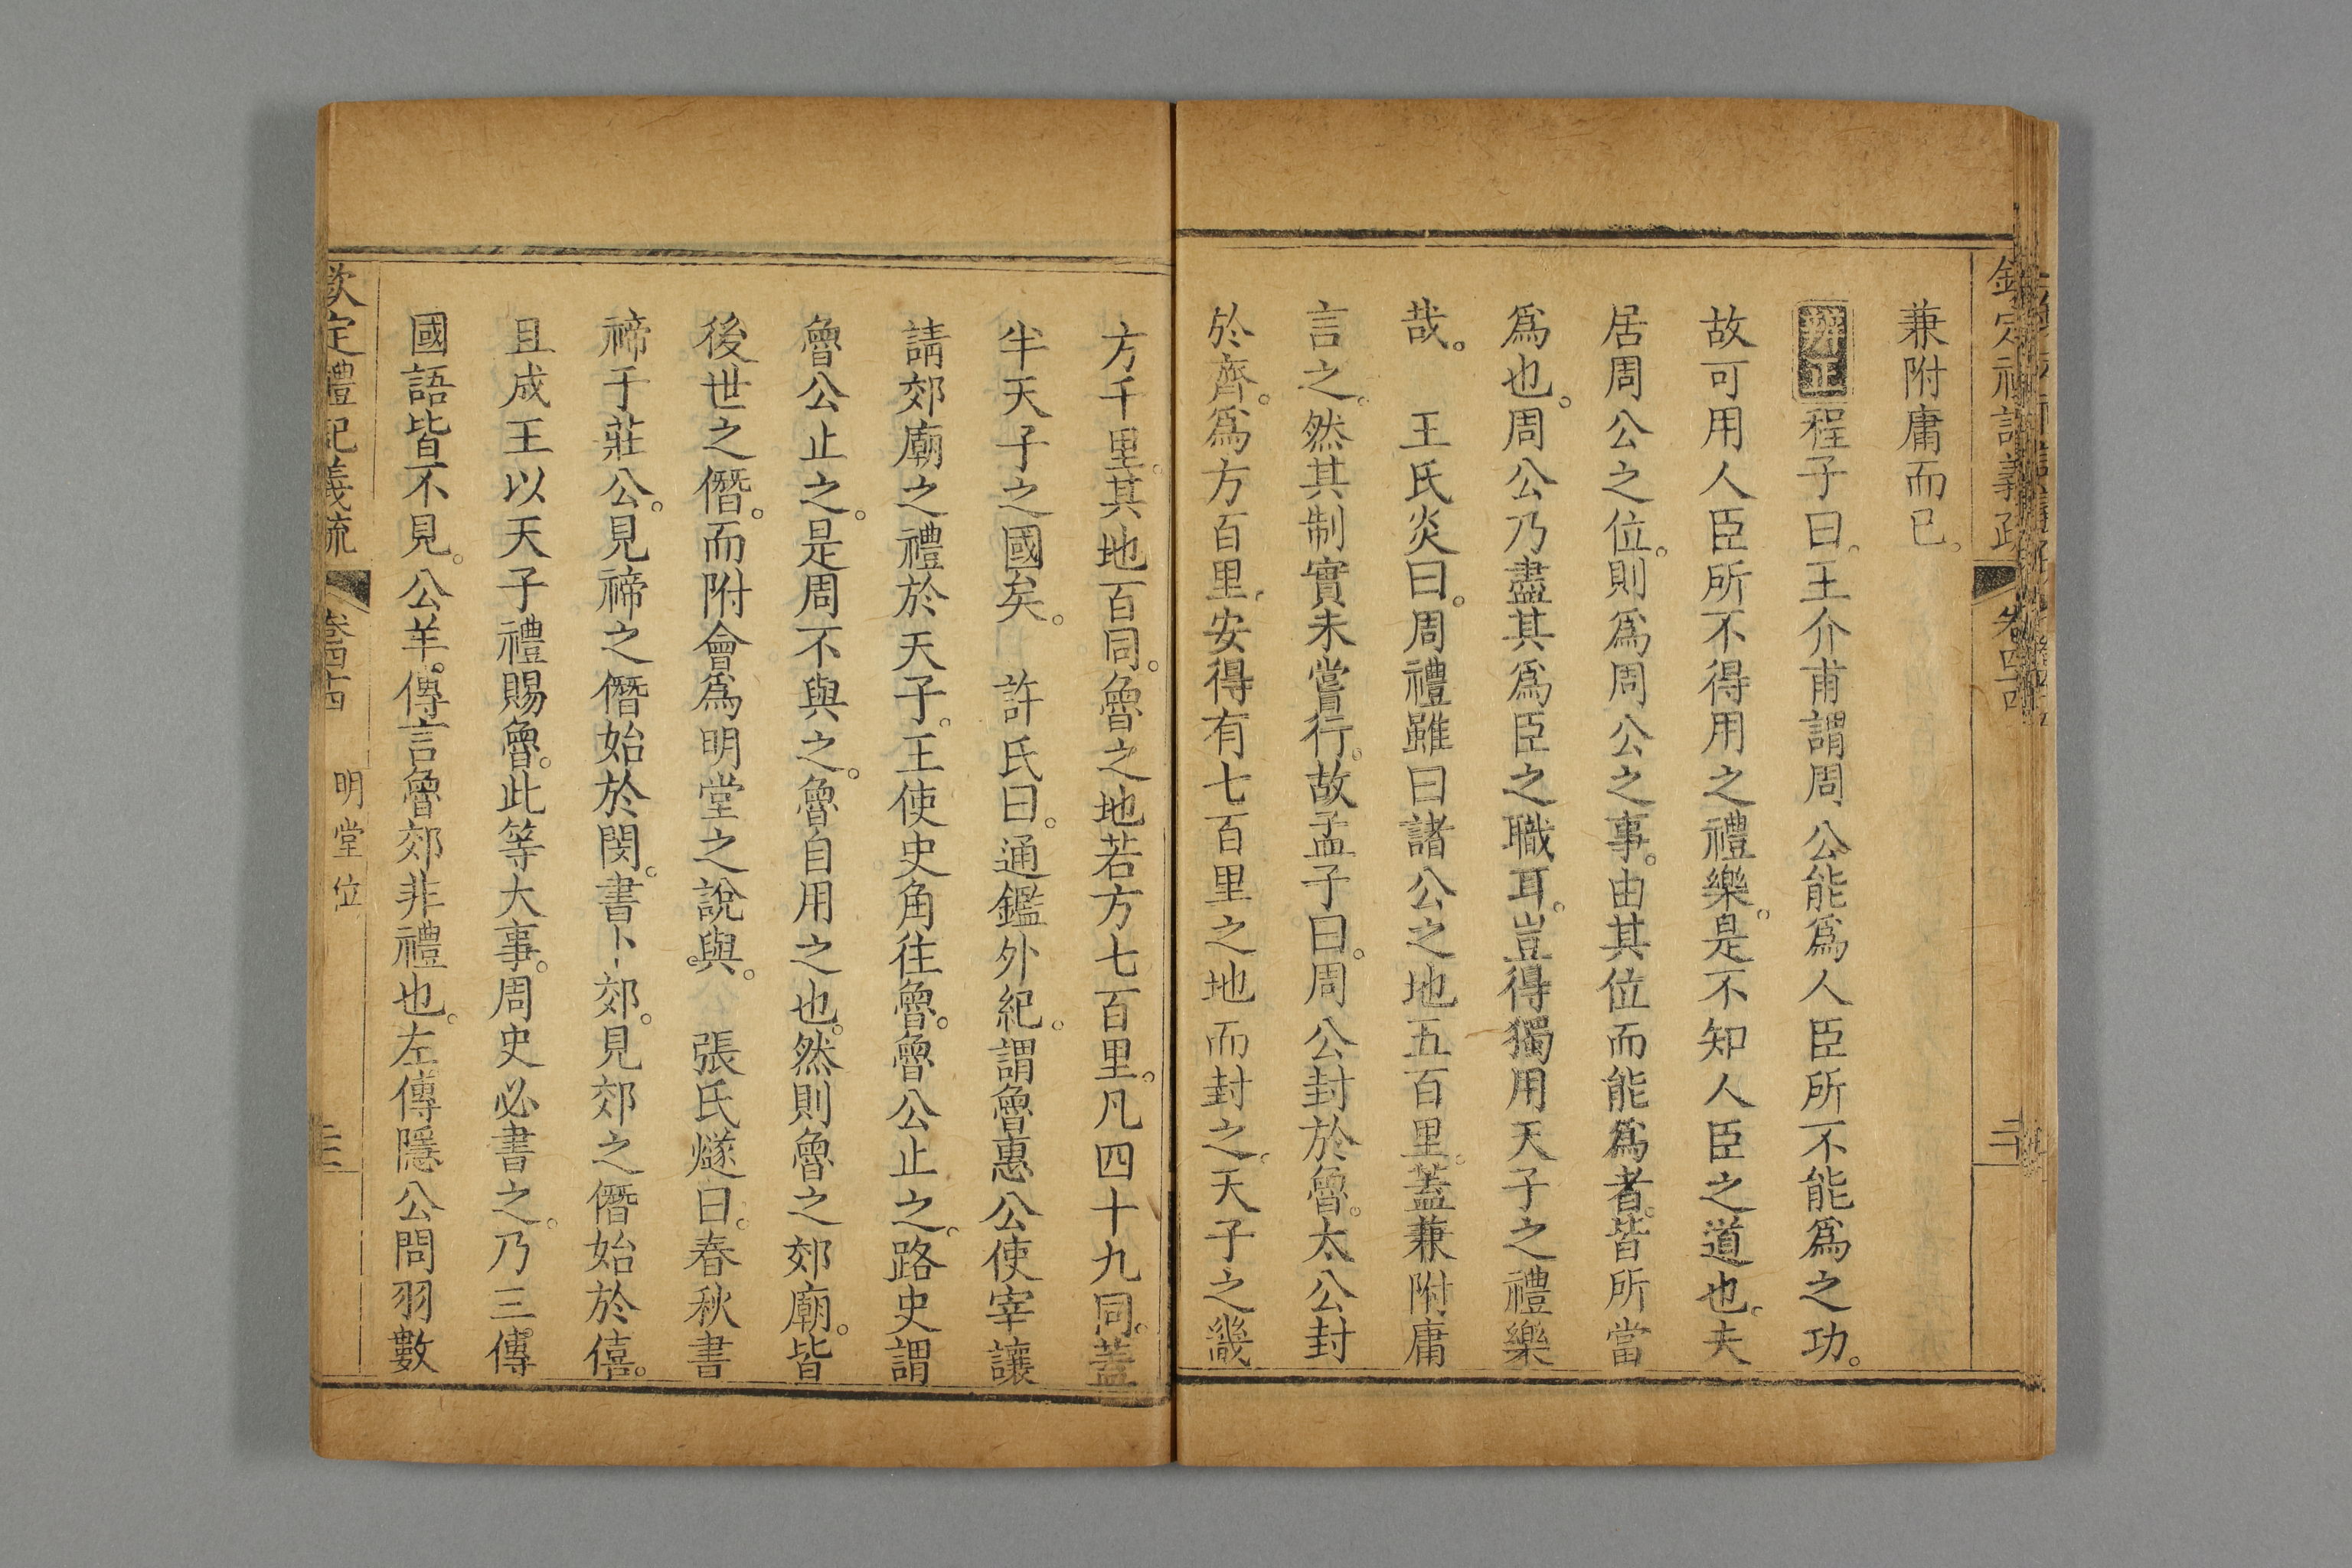 兼附庸而已。
辨正程子曰。王介甫謂周公能爲人臣所不能爲之功。
故可用人臣所不得用之禮樂。是不知人臣之道也。夫
居周公之位。則爲周公之事。由其位而能爲者。皆所當
爲也。周公乃盡其爲臣之職耳。豈得獨用天子之禮樂
哉。　王氏炎曰。周禮雖曰諸公之地五百里。蓋兼附庸
言之。然其制實未嘗行。故孟子曰。周公封於魯。太公封
於齊。爲方百里。安得有七百里之地而封之。天子之畿
方千里。其地百同。魯之地若方七百里。凡四十九同。蓋
半天子之國矣。　許氏曰。通鑑外紀。謂魯惠公使宰讓
請郊廟之禮於天子。王使史角往魯。魯公止之。路史謂
魯公止之。是周不與之。魯自用之也。然則魯之郊廟。皆
後世之僭。而附會爲明堂之說與。　張氏燧曰。春秋書
禘于莊公。見禘之僭始於閔。書卜郊。見郊之僭始於僖。
且成王以天子禮賜魯。此等大事。周史必書之。乃三傳
國語皆不見。公羊。傳言魯郊非禮也。左傳隱公問羽數
欽定禮記義疏　卷四十四　明堂位